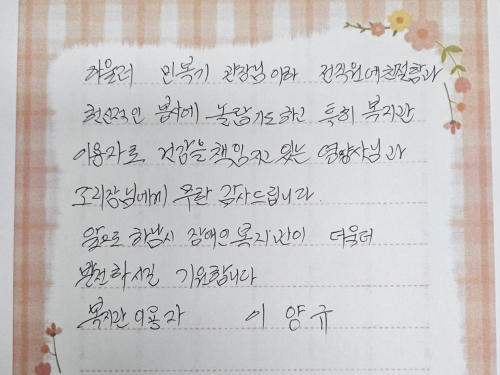 아울러 민복기 관장님 이하 전직원에 친절함과
헌신적인 봉사에 놀랍기도하고 특히 복지관
이용자로 건강을 책임지고 있는 영양사님과
조리장님에게 무한 감사드립니다.
앞으로 하남시 장애인복지관이 더욱더
발전하시길 기원합니다
복지관 이용자 이양규